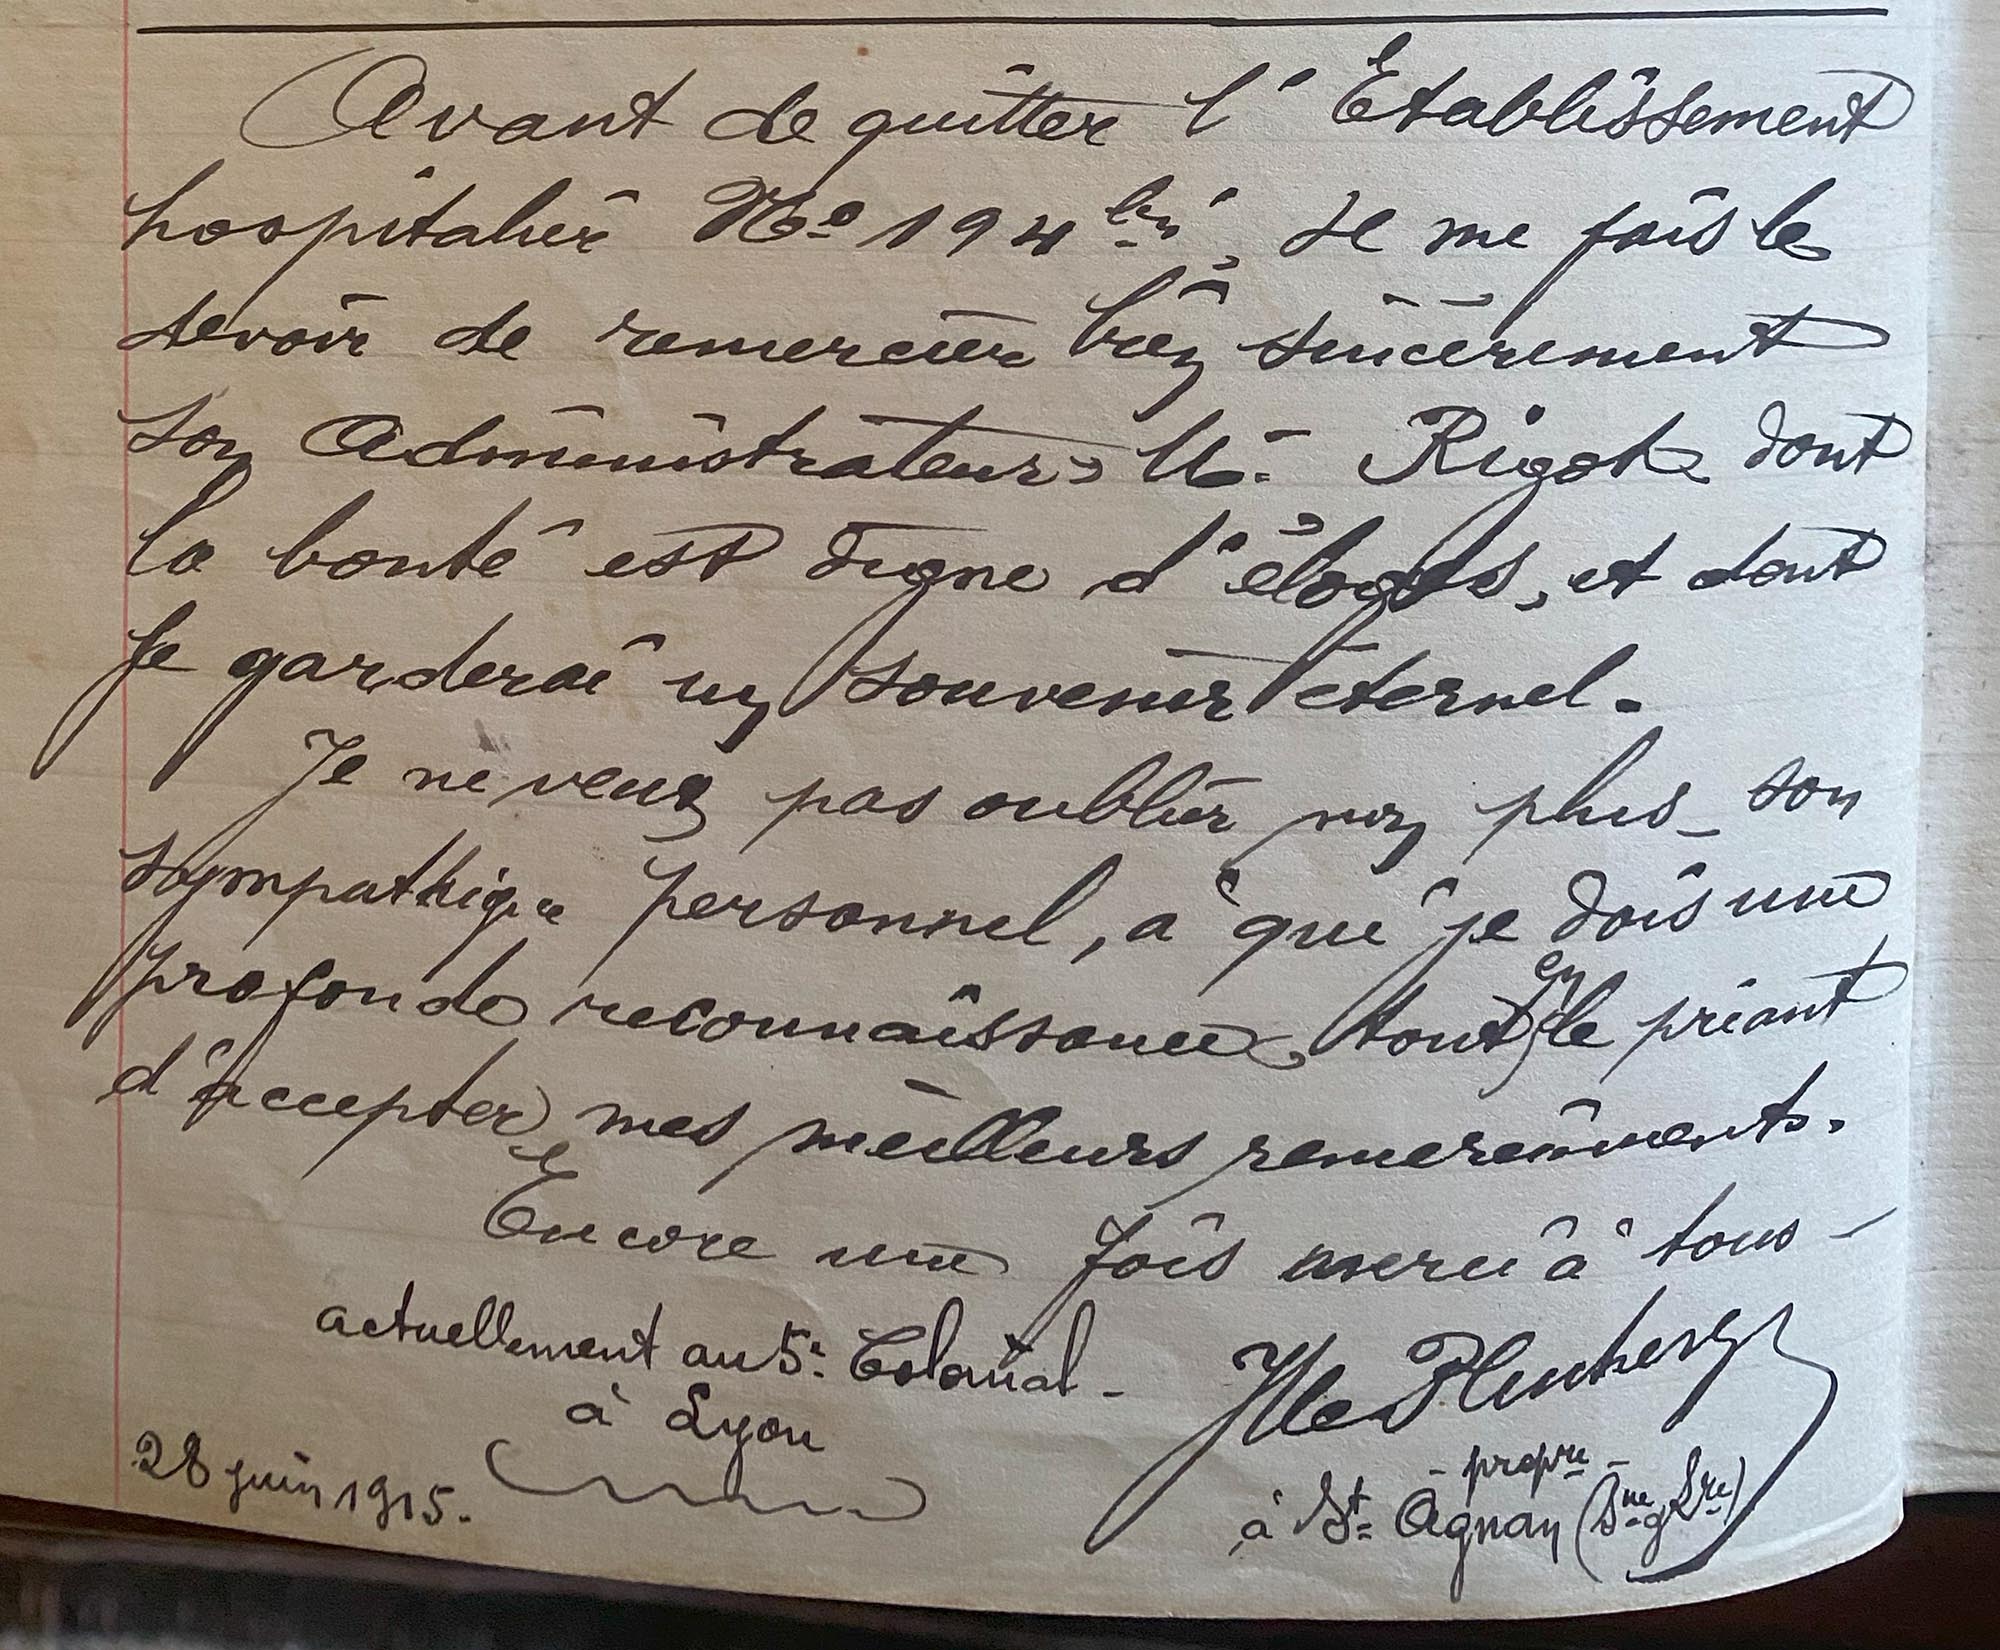 Avant de quitter l'Etablissement
hospitalier No 194 bis, Je me fais le
devoir de remercier bien sincèrement
son Administrateur, M. Rigot dont
la bonté est digne d'éloges, et dont
je garderai un souvenir éternel.
Je ne veux pas oublier non plus_ son
sympathique personnel, à qui je dois une
profonde reconnaissance, tout en le priant
d'accepter mes meilleurs remerciements.
Encore une fois merci à tous-
actuellement au 5e Colonial-
à Lyon
28 juin 1915.
- propre -
à St Agnan (Sne g Lre)